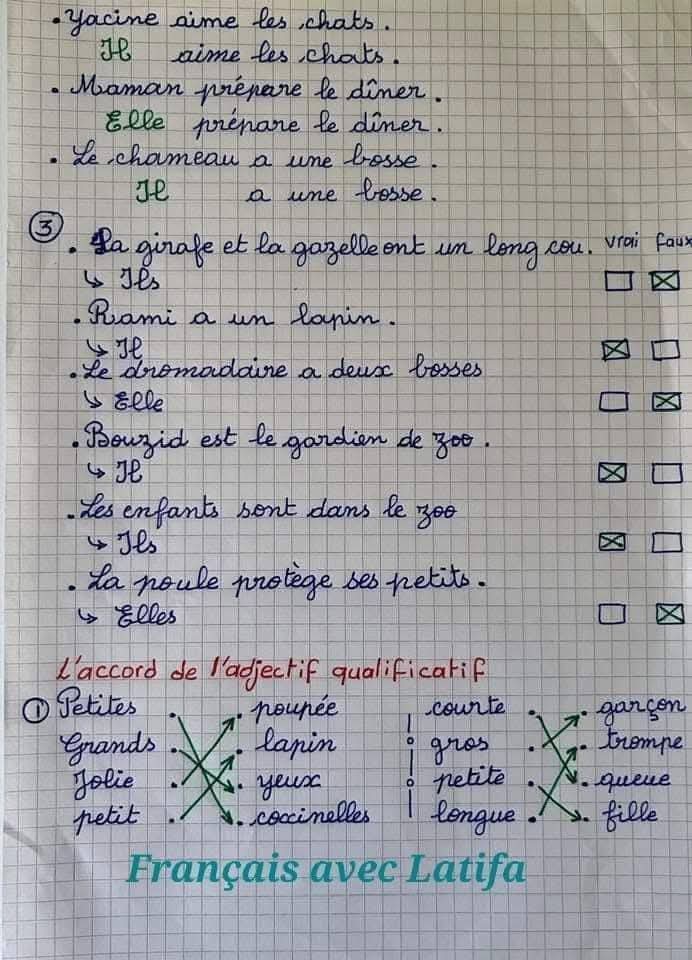 . Yacine aime les chats.
Il aime les chats.
. Maman prépare le dîner.
Elle prépare le dîner.
. Le chameau a une bosse.
Il a une bosse.
③ . La girafe et la gazelle ont un long cou. vrai faux
↳ Ils ☐ ☒
. Rami a un lapin.
↳ Il ☒ ☐
. Le dromadaire a deux bosses
↳ Elle ☐ ☒
. Bouzid est le gardien de zoo.
↳ Il ☒ ☐
. Les enfants sont dans le zoo
↳ Ils ☒ ☐
. La poule protège ses petits.
↳ Elles ☐ ☒
L'accord de l'adjectif qualificatif
① Petites . . poupée courte . . garçon
Grands . . lapin gros . . trompe
Jolie . . yeux petite . . queue
petit . . coccinelles longue . . fille
Français avec Latifa